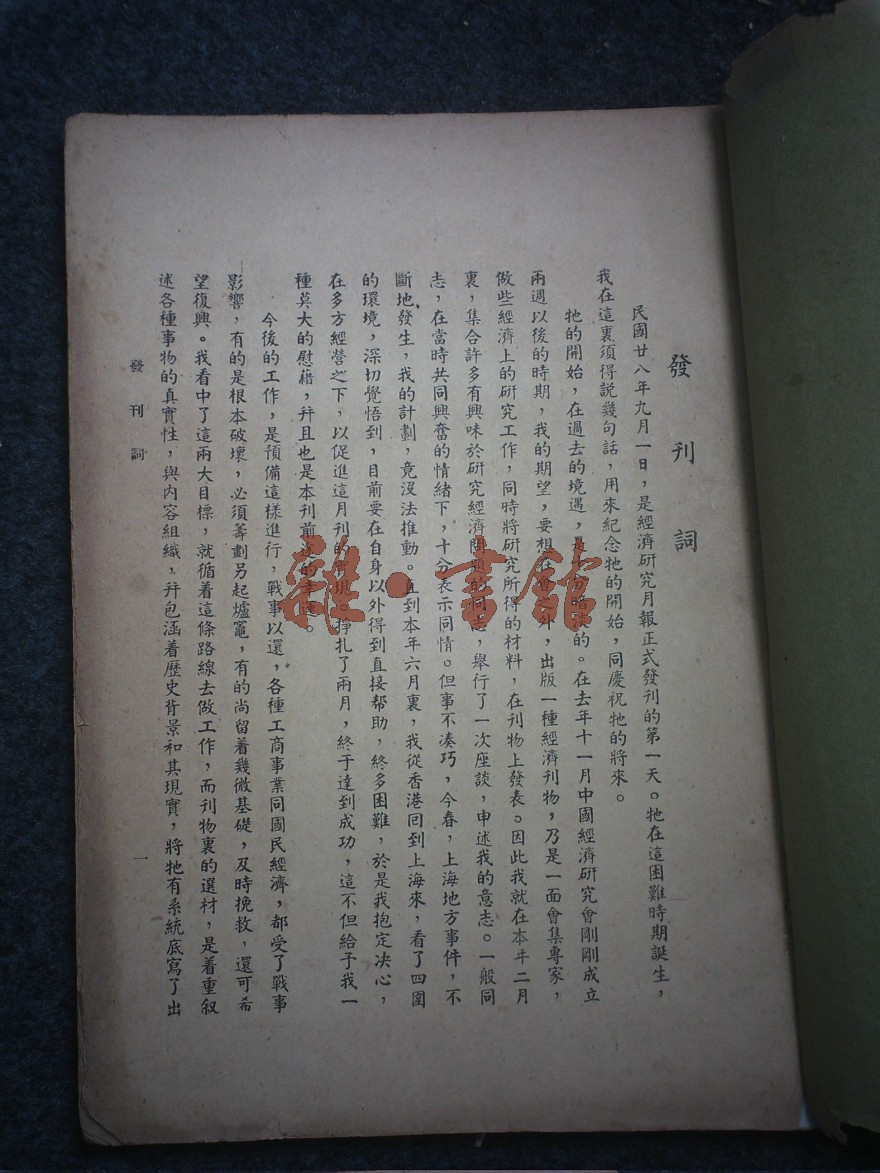 發刊詞
民國廿八年九月一日，是經濟研究月報正式發刊的第一天。牠在這困難時期誕生，
我在這裏須得說幾句話，用來紀念牠的開始，同慶祝牠的將來。
牠的開始，在過去的境遇，是 暗淡的。在去年十一月中國經濟研究會剛剛成立
兩週以後的時期，我的期望，要想在會 外，出版一種經濟刊物，乃是一面會集專家，
做些經濟上的研究工作，同時將研究所得的材料，在刊物上發表。因此我就在本年二月
裏，集合許多有興味於研究經濟問題的同志，舉行了一次座談，申述我的意志。一般同
志，在當時共同興奮的情緒下，十分表示同情。但事不湊巧，今春，上海地方事件，不
斷地發生，我的計劃，竟沒法推動。直到本年六月裏，我從香港回到上海來，看了四圍
的環境，深切覺悟到，目前要在自身以外得到直接帮助，終多困難，於是我抱定决心，
在多方經營之下，以促進這月刊的實現。掙扎了兩月，終于達到成功，這不但給予我一
種莫大的慰藉，幷且也是本刊前途的幸運。
今後的工作，是預備這樣進行，戰事以還，各種工商事業同國民經濟，都受了戰事
影響，有的是根本破壞，必須籌劃另起爐竈，有的尚留着幾微基礎，及時挽救，還可希
望復興。我看中了這兩大目標，就循着這條路線去做工作，而刊物裏的選材，是着重叙
述各種事物的真實性，與內容組織，幷包涵着歷史背景和其現實，將牠有系統底寫了出
發刊詞
一
雜·書館